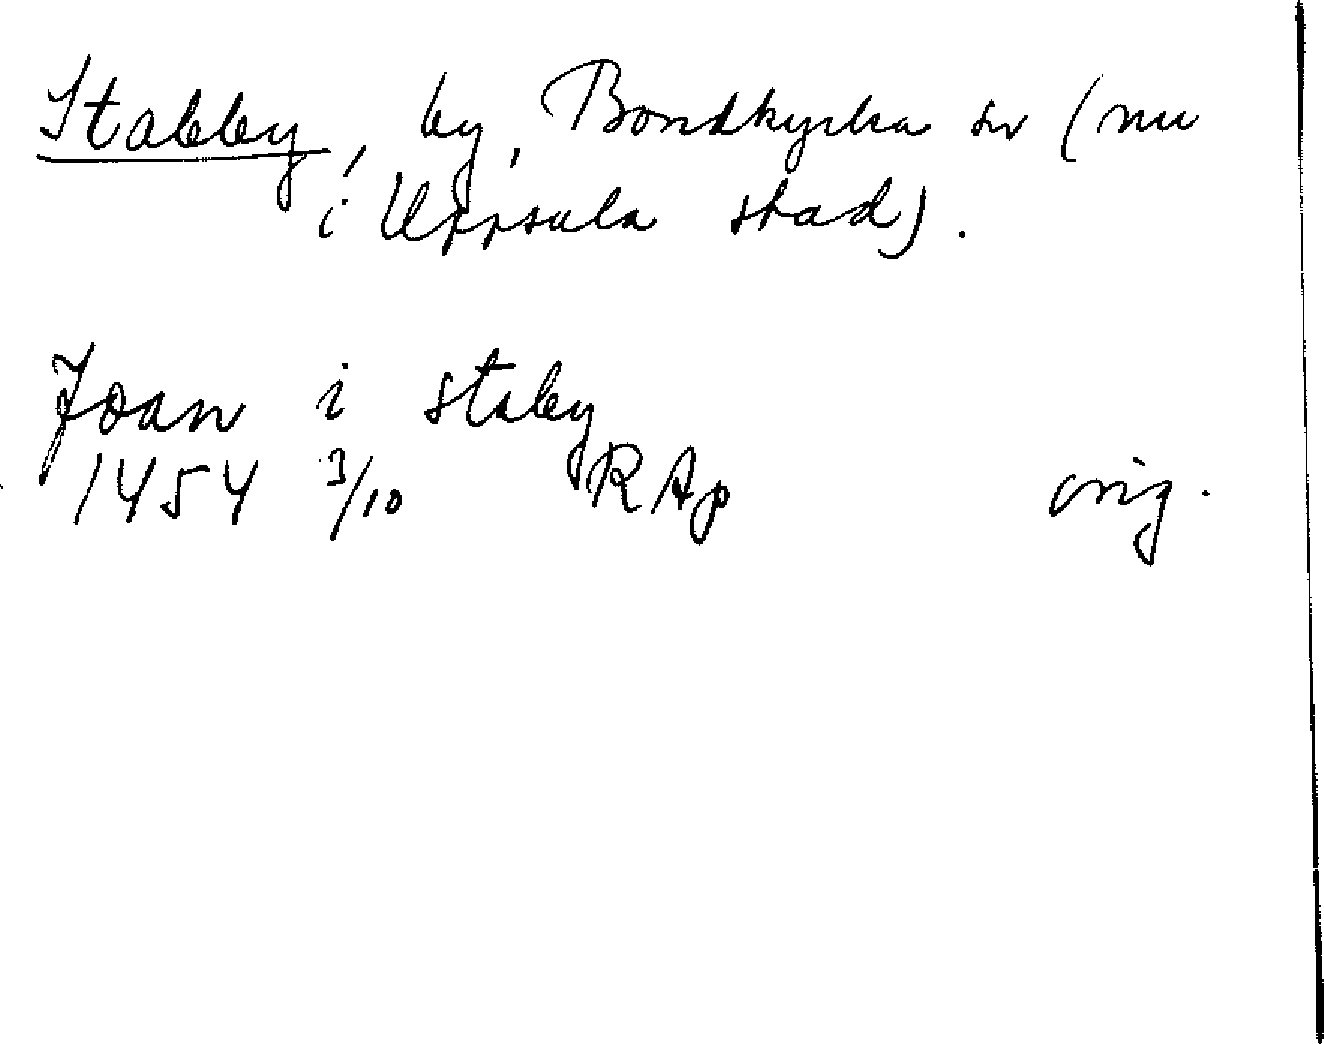 Stabby, by, Bondkyrka sn (nu
i Uppsala stad).
Joan i staby
1454 3/10 RAp orig.